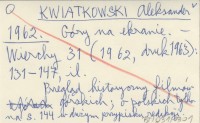 KWIATKOWSKI Aleksander
1962. Góry na ekranie. –
Wierchy 31 (1962, druk 1963):
131-147, il.
Przegląd historyczny filmów
górskich, o polskich tylko
na s. 144 i w długim przypisku redakc.